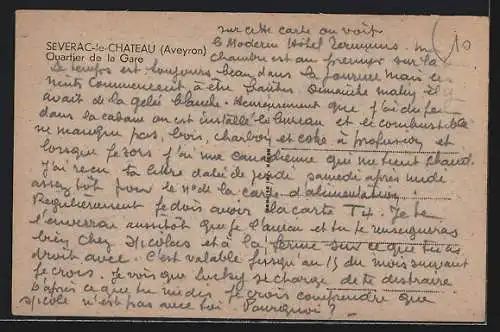 SEVERAC-le-CHATEAU (Aveyron)
Quartier de la Gare
10
sur cette carte on voit
le Modern Hôtel Terminus. ma
chambre est au premier sur la
Le temps est toujours beau dans la journée mais les
nuits commencent à être fraîches Dimanche matin il y
avait de la gelée blanche. Heureusement que j'ai du feu
dans la cabane où est installé le bureau et le combustible
ne manque pas, bois, charbon et coke à profusion et
lorsque je sors j'ai une canadienne qui me tient chaud.
J'ai reçu ta lettre datée de jeudi samedi après midi
assez tôt pour le n° de la carte d'alimentation.
Régulièrement je dois avoir la carte T4. Je te
l'enverrai aussitôt que je l'aurai et tu te renseigneras
bien chez Nicolas et à la ferme sur ce que tu as
droit avec. C'est valable jusqu'au 15 du mois suivant
je crois. Je vois que Lucky se charge de te distraire
D'après ce que tu me dis je crois comprendre que
n'est pas avec toi Pourquoi ?